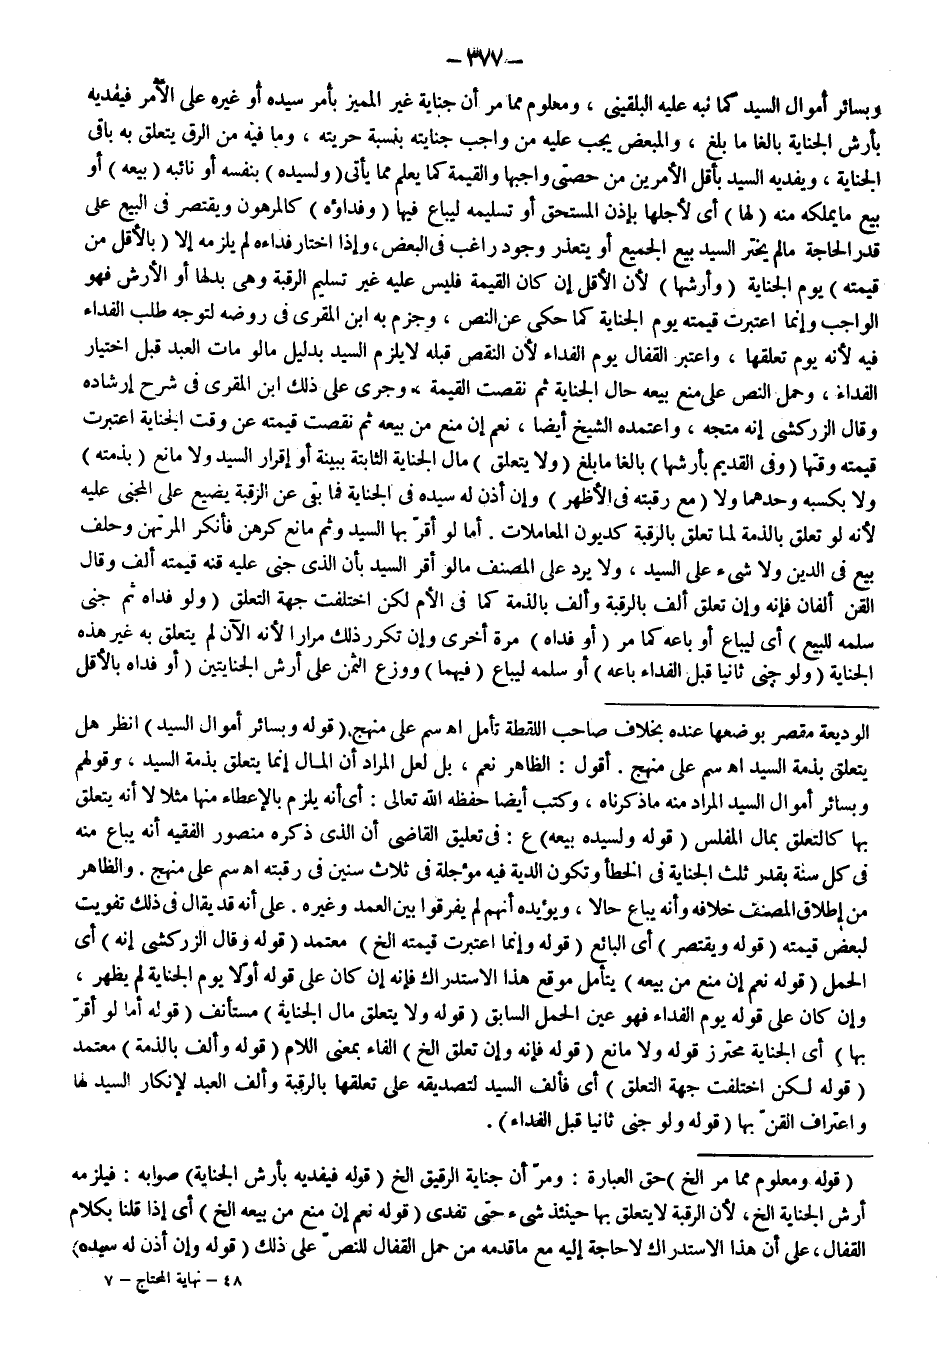 — ٣٧٧ —
وبسائر أموال السيد كما نبه عليه البلقيني ، ومعلوم مما مر أن جناية غير المميز بأمر سيده أو غيره على الآمر فيفديه
بأرش الجناية بالغا ما بلغ ، والمبعض يجب عليه من واجب جنايته بنسبة حريته ، وما فيه من الرق يتعلق به باقى
الجناية ، ويفديه السيد بأقل الأمرين من حصتى واجبها والقيمة كما يعلم مما يأتى ( ولسيده ) بنفسه أو نائبه ( بيعه ) أو
بيع مايملكه منه ( لها ) أى لأجلها بإذن المستحق أو تسليمه ليباع فيها ( وفداؤه ) كالمرهون ويقتصر فى البيع على
قدر الحاجة مالم يختر السيد بيع الجميع أو يتعذر وجود راغب فى البعض ، وإذا اختار فداءه لم يلزمه إلا ( بالأقل من
قيمته ) يوم الجناية ( وأرشها ) لأن الأقل إن كان القيمة فليس عليه غير تسليم الرقبة وهى بدلها أو الأرش فهو
الواجب وإنما اعتبرت قيمته يوم الجناية كما حكى عن النص ، وجزم به ابن المقرى فى روضه لتوجه طلب الفداء
فيه لأنه يوم تعلقها ، واعتبر القفال يوم الفداء لأن النقص قبله لايلزم السيد بدليل مالو مات العبد قبل اختيار
الفداء ، وحمل النص على منع بيعه حال الجناية ثم نقصت القيمة ، وجرى على ذلك ابن المقرى فى شرح إرشاده
وقال الزركشى إنه متجه ، واعتمده الشيخ أيضا ، نعم إن منع من بيعه ثم نقصت قيمته عن وقت الجناية اعتبرت
قيمته وقتها ( وفى القديم بأرشها ) بالغا مابلغ ( ولا يتعلق ) مال الجناية الثابتة ببينة أو إقرار السيد ولا مانع ( بذمته )
ولا بكسبه وحدهما ولا ( مع رقبته فى الأظهر ) وإن أذن له سيده فى الجناية فما بقى عن الرقبة يضيع على المجنى عليه
لأنه لو تعلق بالذمة لما تعلق بالرقبة كديون المعاملات . أما لو أقرّ بها السيد وثم مانع كرهن فأنكر المرتهن وحلف
بيع فى الدين ولا شىء على السيد ، ولا يرد على المصنف مالو أقر السيد بأن الذى جنى عليه قنه قيمته ألف وقال
القن ألفان فإنه وإن تعلق ألف بالرقبة وألف بالذمة كما فى الأم لكن اختلفت جهة التعلق ( ولو فداه ثم جنى
سلمه للبيع ) أى ليباع أو باعه كما مر ( أو فداه ) مرة أخرى وإن تكرر ذلك مرارا لأنه الآن لم يتعلق به غير هذه
الجناية ( ولو جنى ثانيا قبل الفداء باعه ) أو سلمه ليباع ( فيهما ) ووزع الثمن على أرش الجنايتين ( أو فداه بالأقل
الوديعة مقصر بوضعها عنده بخلاف صاحب اللقطة تأمل اه سم على منهج . ( قوله وبسائر أموال السيد ) انظر هل
يتعلق بذمة السيد اه سم على منهج . أقول : الظاهر نعم ، بل لعل المراد أن المال إنما يتعلق بذمة السيد ، وقولهم
وبسائر أموال السيد المراد منه ماذكرناه ، وكتب أيضا حفظه الله تعالى : أى أنه يلزم بالإعطاء منها مثلا لا أنه يتعلق
بها كالتعلق بمال المفلس ( قوله ولسيده بيعه ) ع : فى تعليق القاضى أن الذى ذكره منصور الفقيه أنه يباع منه
فى كل سنة بقدر ثلث الجناية فى الخطأ وتكون الدية فيه مؤجلة فى ثلاث سنين فى رقبته اه سم على منهج . والظاهر
من إطلاق المصنف خلافه وأنه يباع حالا ، ويؤيده أنهم لم يفرقوا بين العمد وغيره . على أنه قد يقال فى ذلك تفويت
لبعض قيمته ( قوله ويقتصر ) أى البائع ( قوله وإنما اعتبرت قيمته الخ ) معتمد ( قوله وقال الزركشى إنه ) أى
الحمل ( قوله نعم إن منع من بيعه ) يتأمل موقع هذا الاستدراك فإنه إن كان على قوله أوّلا يوم الجناية لم يظهر ،
وإن كان على قوله يوم الفداء فهو عين الحمل السابق ( قوله ولا يتعلق مال الجناية ) مستأنف ( قوله أما لو أقرّ
بها ) أى الجناية محترز قوله ولا مانع ( قوله فإنه وإن تعلق الخ ) الفاء بمعنى اللام ( قوله وألف بالذمة ) معتمد
( قوله لكن اختلفت جهة التعلق ) أى فألف السيد لتصديقه على تعلقها بالرقبة وألف العبد لإنكار السيد لها
واعتراف القنّ بها ( قوله ولو جنى ثانيا قبل الفداء ) .
( قوله ومعلوم مما مر الخ ) حق العبارة : ومرّ أن جناية الرقيق الخ ( قوله فيفديه بأرش الجناية ) صوابه : فيلزمه
أرش الجناية الخ ، لأن الرقبة لايتعلق بها حينئذ شىء حتى تفدى ( قوله نعم إن منع من بيعه الخ ) أى إذا قلنا بكلام
القفال ، على أن هذا الاستدراك لاحاجة إليه مع ماقدمه من حمل القفال للنصّ على ذلك ( قوله وإن أذن له سيده )
٤٨ – نهاية المحتاج – ٧